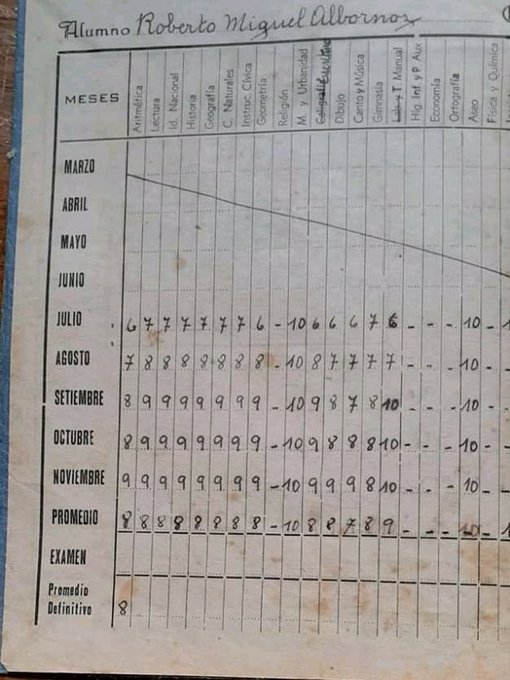 Alumno Roberto Miguel Albornoz
MESES Aritmética Lectura Id. Nacional Historia Geografía C. Naturales Instruc. Cívica Geometría Religión M. y Urbanidad Caligrafía Escritura Dibujo Canto y Música Gimnasia T. Manual Hig. Inf. y P. Aux Economía Ortografía Aseo Física y Química
MARZO
ABRIL
MAYO
JUNIO
JULIO 6 7 7 7 7 7 7 6 - 10 6 6 6 7 6 - - - 10 -
AGOSTO 7 8 8 8 8 8 8 8 - 10 8 7 7 7 7 - - - 10 -
SETIEMBRE 8 9 9 9 9 9 9 9 - 10 9 8 7 8 10 - - - 10 -
OCTUBRE 8 9 9 9 9 9 9 9 - 10 9 8 8 8 10 - - - 10 -
NOVIEMBRE 9 9 9 9 9 9 9 9 - 10 9 9 9 8 10 - - - 10 -
PROMEDIO 8 8 8 8 8 8 8 8 - 10 8 8 7 8 9 - - - 10 -
EXAMEN
Promedio
Definitivo 8